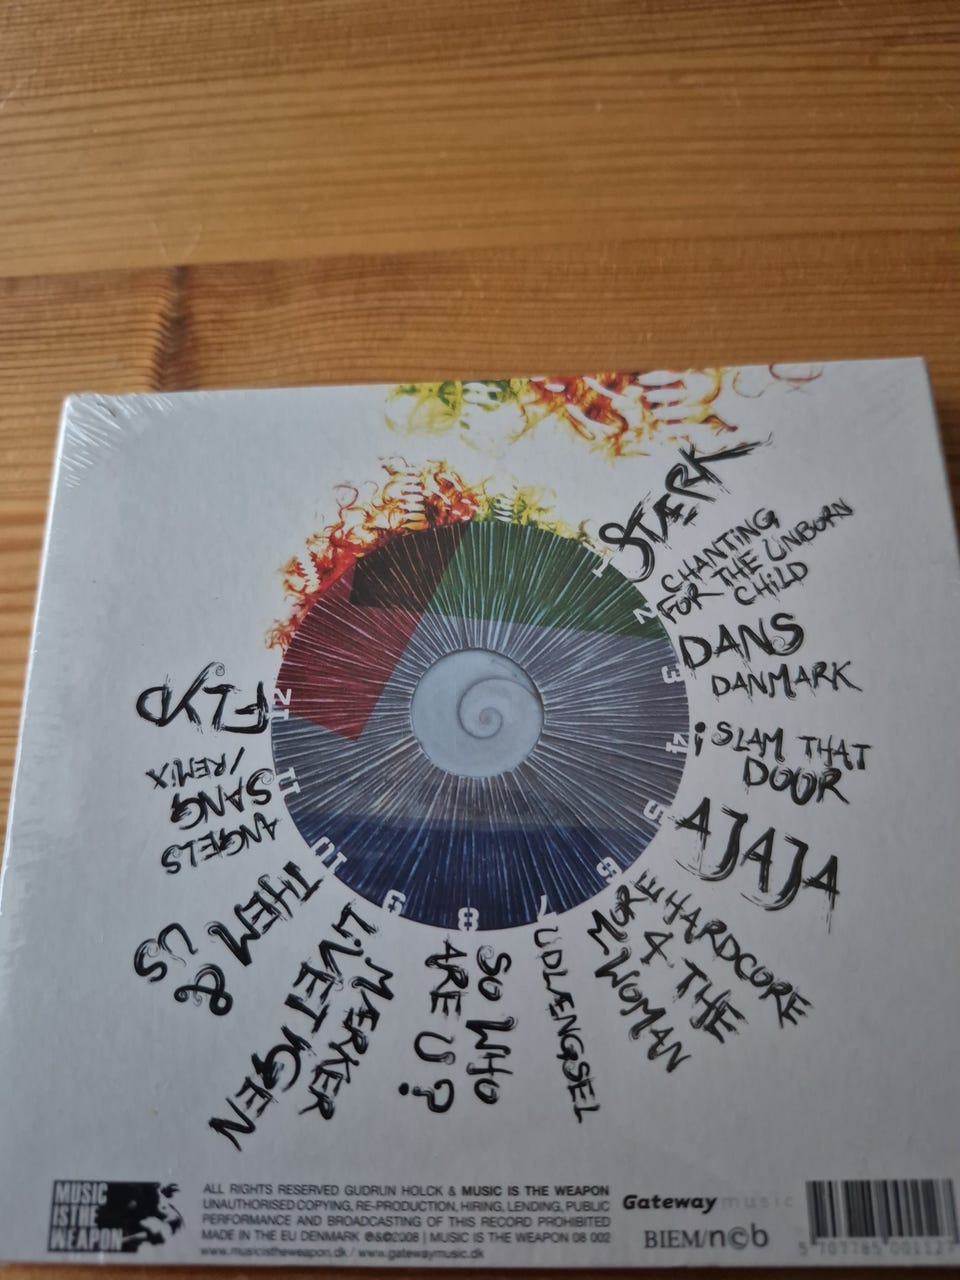 1
STÆRK
2
CHANTING
FOR THE UNBORN
CHILD
3
DANS
DANMARK
4
¡SLAM THAT
DOOR
5
AJAJA
6
HARDCORE
MORE 4 THE
WOMAN
7
UDLÆNGSEL
8
SO WHO
ARE U?
9
MÆRKER
LIVET IGEN
10
THEM &
US
11
ANGELS
SANG
/REMIX
12
FLYD
MUSIC
IS THE
WEAPON
ALL RIGHTS RESERVED GUDRUN HOLCK & MUSIC IS THE WEAPON
UNAUTHORISED COPYING, RE-PRODUCTION, HIRING, LENDING, PUBLIC
PERFORMANCE AND BROADCASTING OF THIS RECORD PROHIBITED
MADE IN THE EU DENMARK ℗&©2008 | MUSIC IS THE WEAPON 08 002
www.musicistheweapon.dk / www.gatewaymusic.dk
Gateway music
BIEM/n©b
5 707785 001127